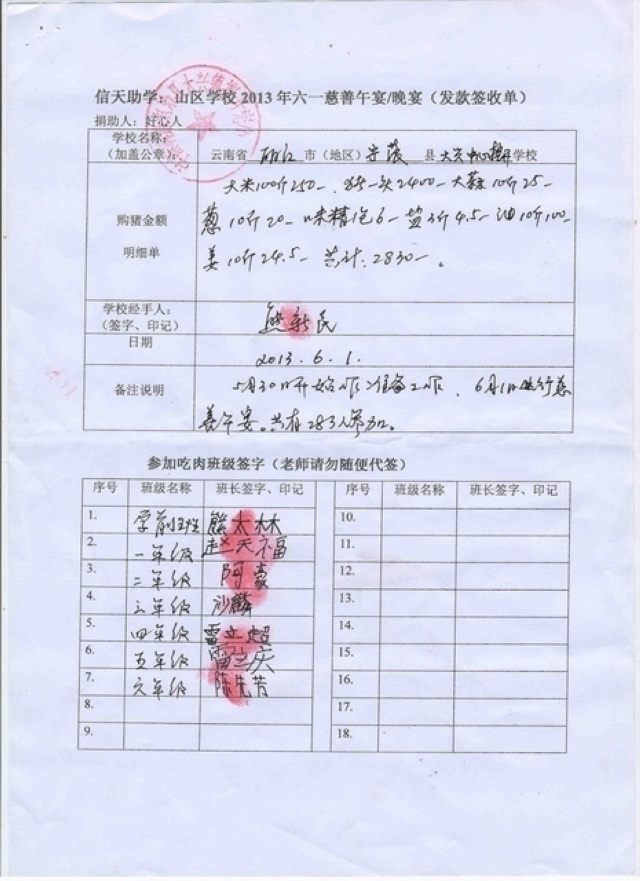 信天助学:山区学校2013年六一慈善午宴/晚宴(发款签收单)
捐助人:好心人
学校名称:
(加盖公章): 云南省 丽江 市(地区) 宁蒗 县 大兴中心 学校
大米100斤250— 猪一头2400— 大蒜10斤25—
购猪金额 葱10斤20— 味精1包6— 盐3斤4.5— 油10斤100—
明细单 姜10斤24.5— 共计:2830—。
学校经手人:
(签字、印记) 熊新民
日期 2013.6.1.
备注说明 5月30日开始作准备工作,6月1日进行慈
善午宴。共有283人参加。
参加吃肉班级签字(老师请勿随便代签)
序号 班级名称 班长签字、印记 序号 班级名称 班长签字、印记
1. 学前班 熊太林 10.
2. 一年级 赵天福 11.
3. 二年级 阿豪 12.
4. 三年级 沙麟 13.
5. 四年级 雷立超 14.
6. 五年级 雷兰庆 15.
7. 六年级 陈先芳 16.
8. 17.
9. 18.